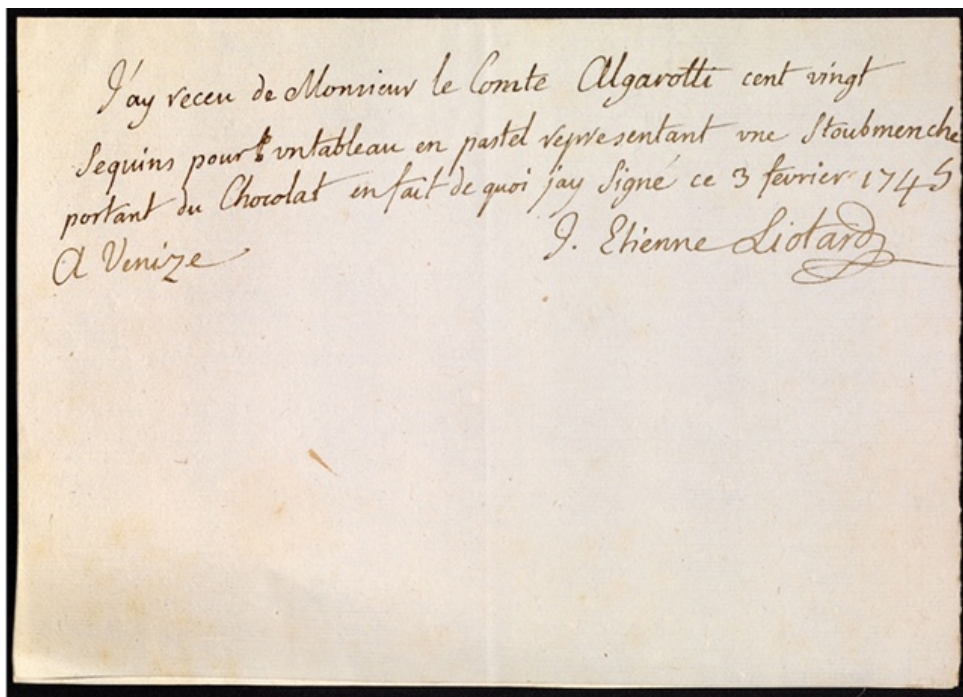 J'ay receu de Monsieur le Comte Algarotti cent vingt
Sequins pour un tableau en pastel representant une Stoubmenche
portant du Chocolat en fait de quoi jay Signé ce 3 fevrier 1745
A Venize J. Etienne Liotard